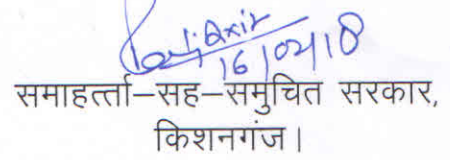 16/02/18
समाहर्त्ता–सह–समुचित सरकार,
किशनगंज।